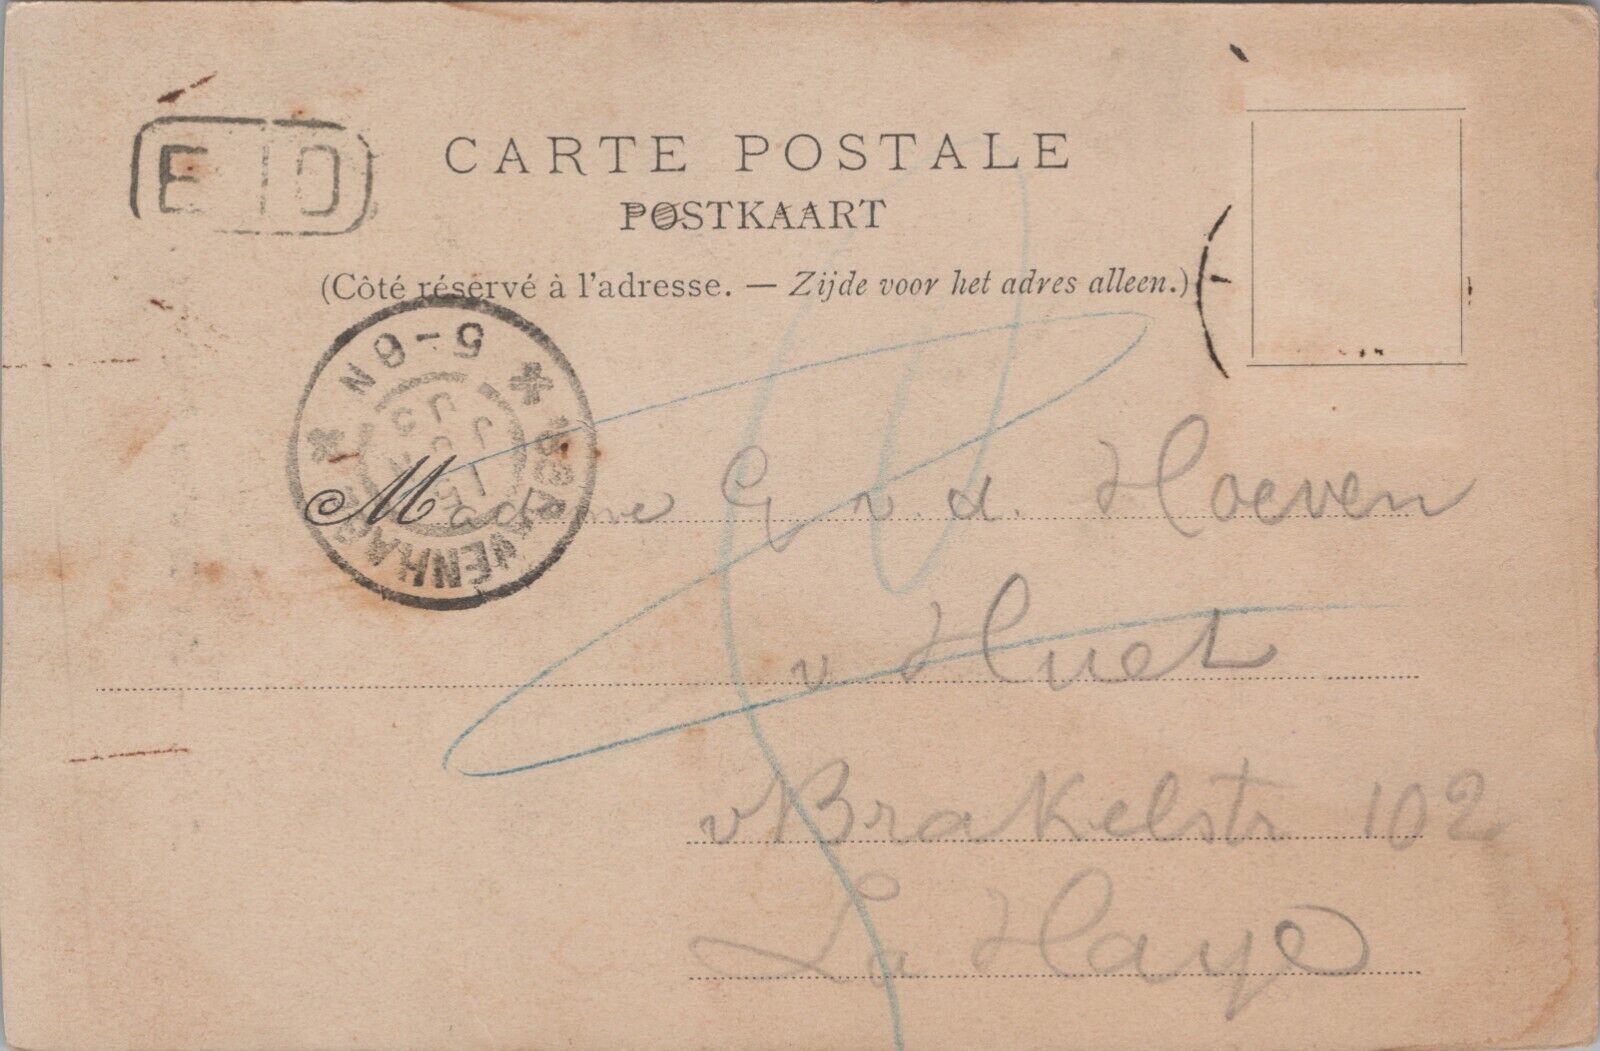 CARTE POSTALE
POSTKAART
(Côté réservé à l'adresse. — Zijde voor het adres alleen.)
5-8N
Madame G v. d. Hoeven
v Huet
v Brakelstr 102
La Haye